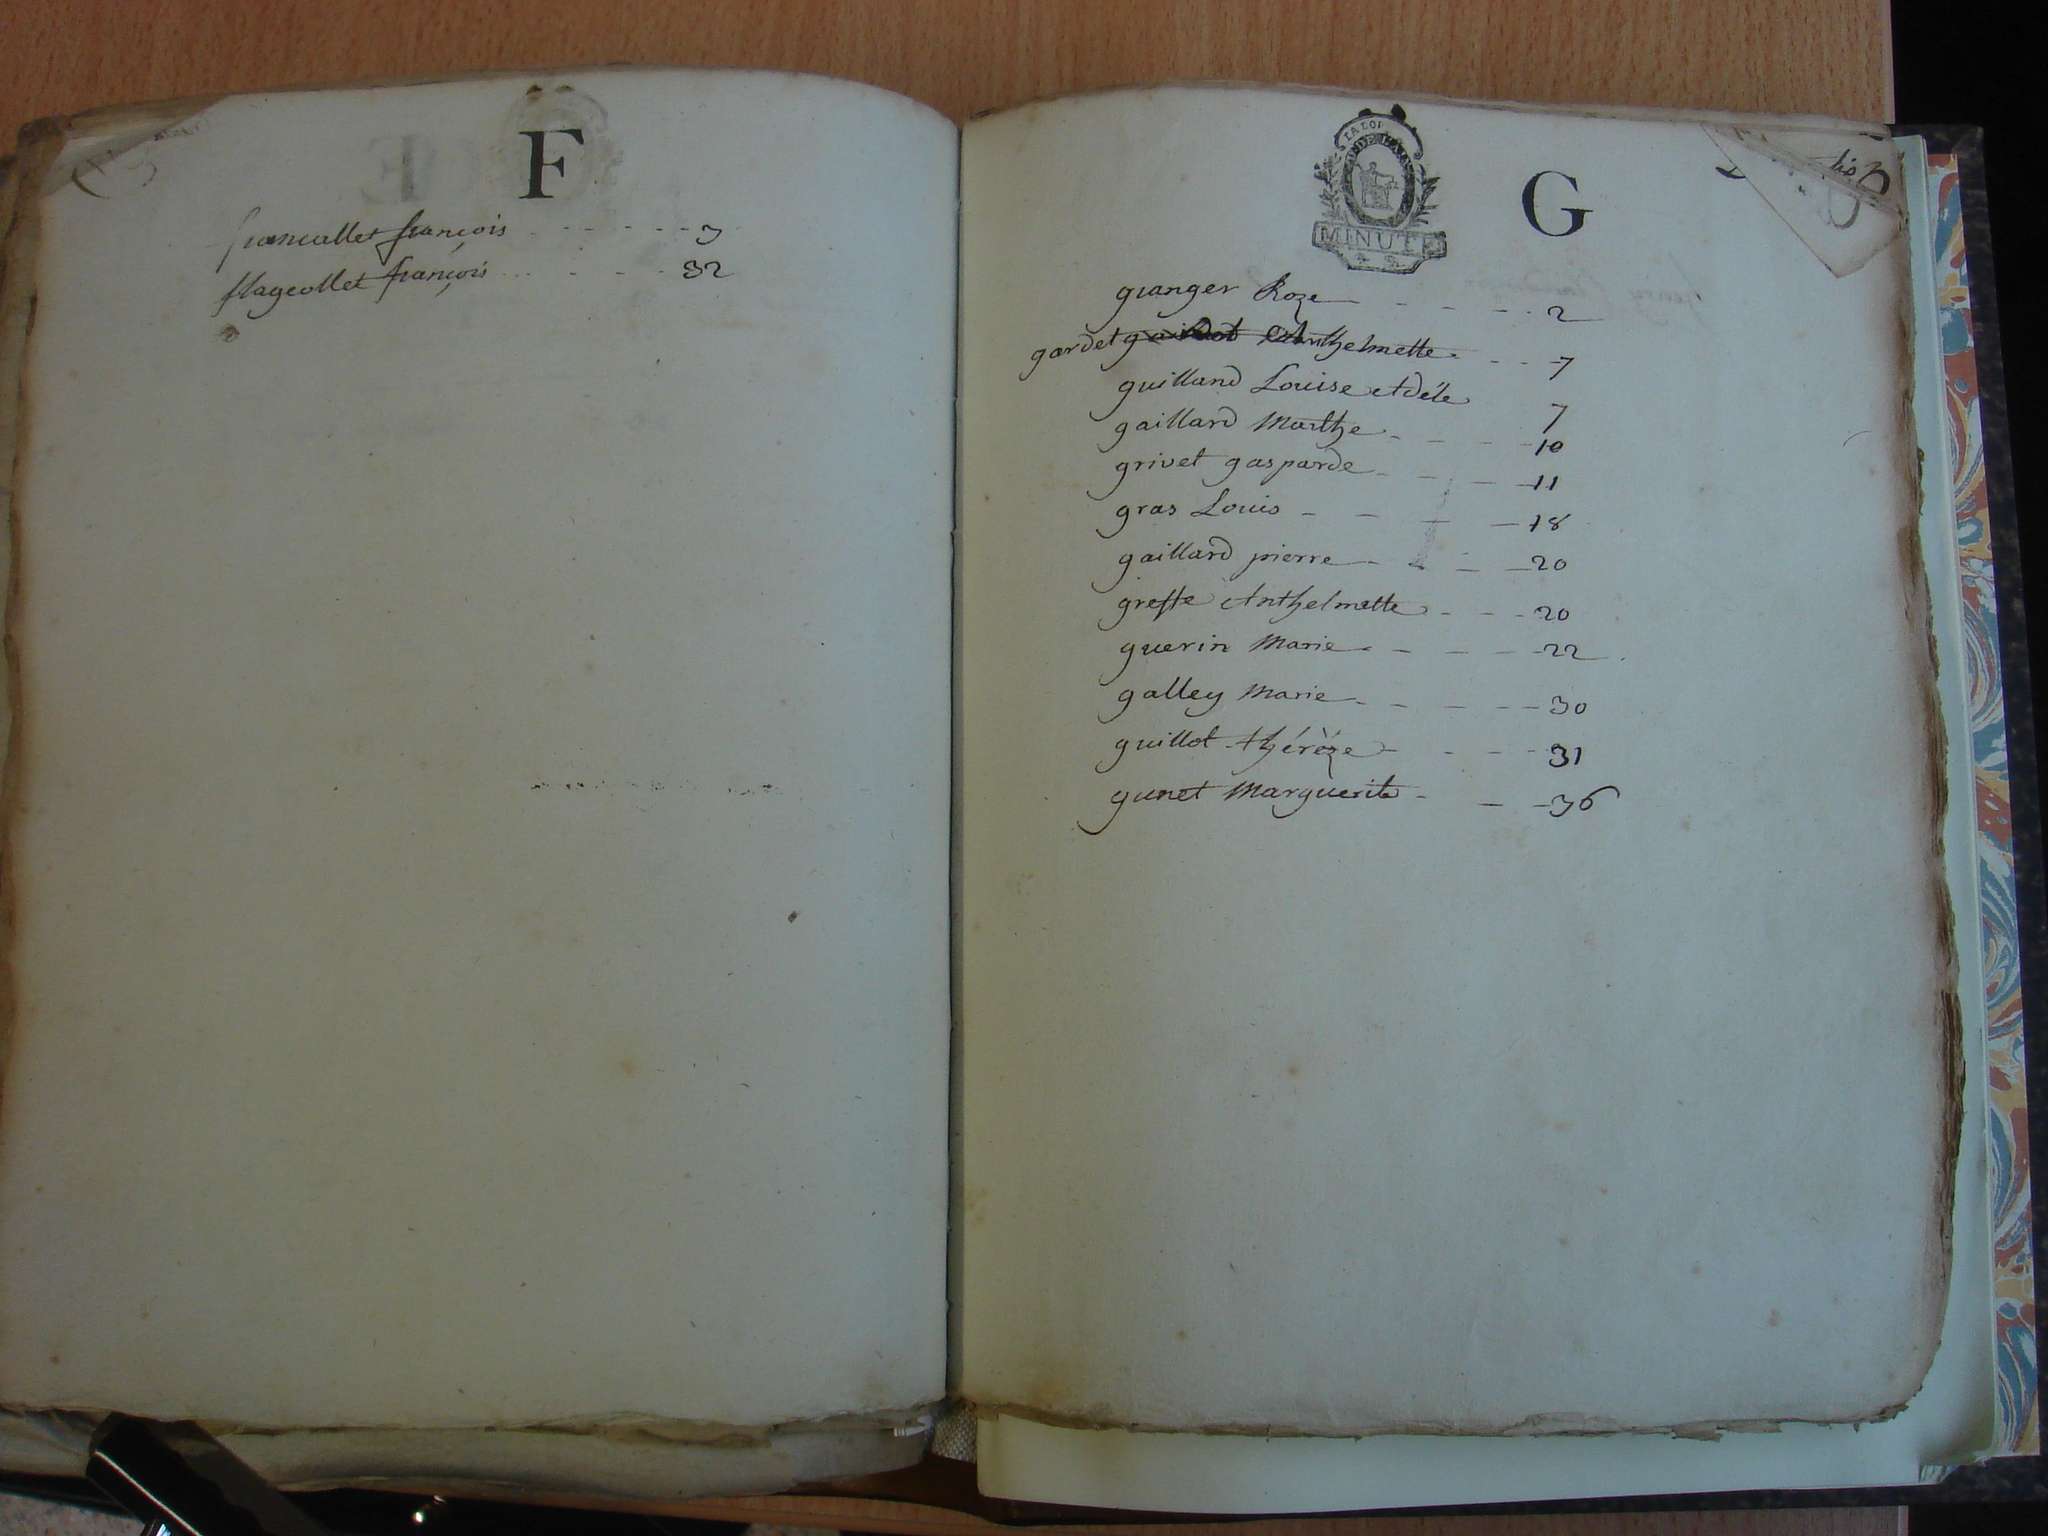 F
francallet françois - - - - - - 3
flageollet françois - - - - - 32
LA LOI
MINUTE
G
granger Roze - - - - 2
gardet Anthelmette - - - 7
guilland Louise Adéle 7
gaillard Marthe - - - - 10
grivet gasparde - - - - 11
gras Louis - - - - 18
gaillard pierre - - - - 20
greffe Anthelmette - - - 20
guerin Marie - - - - 22
galley Marie - - - - - 30
guillot thérèze - - - - 31
gunet Marguerite - - - 36